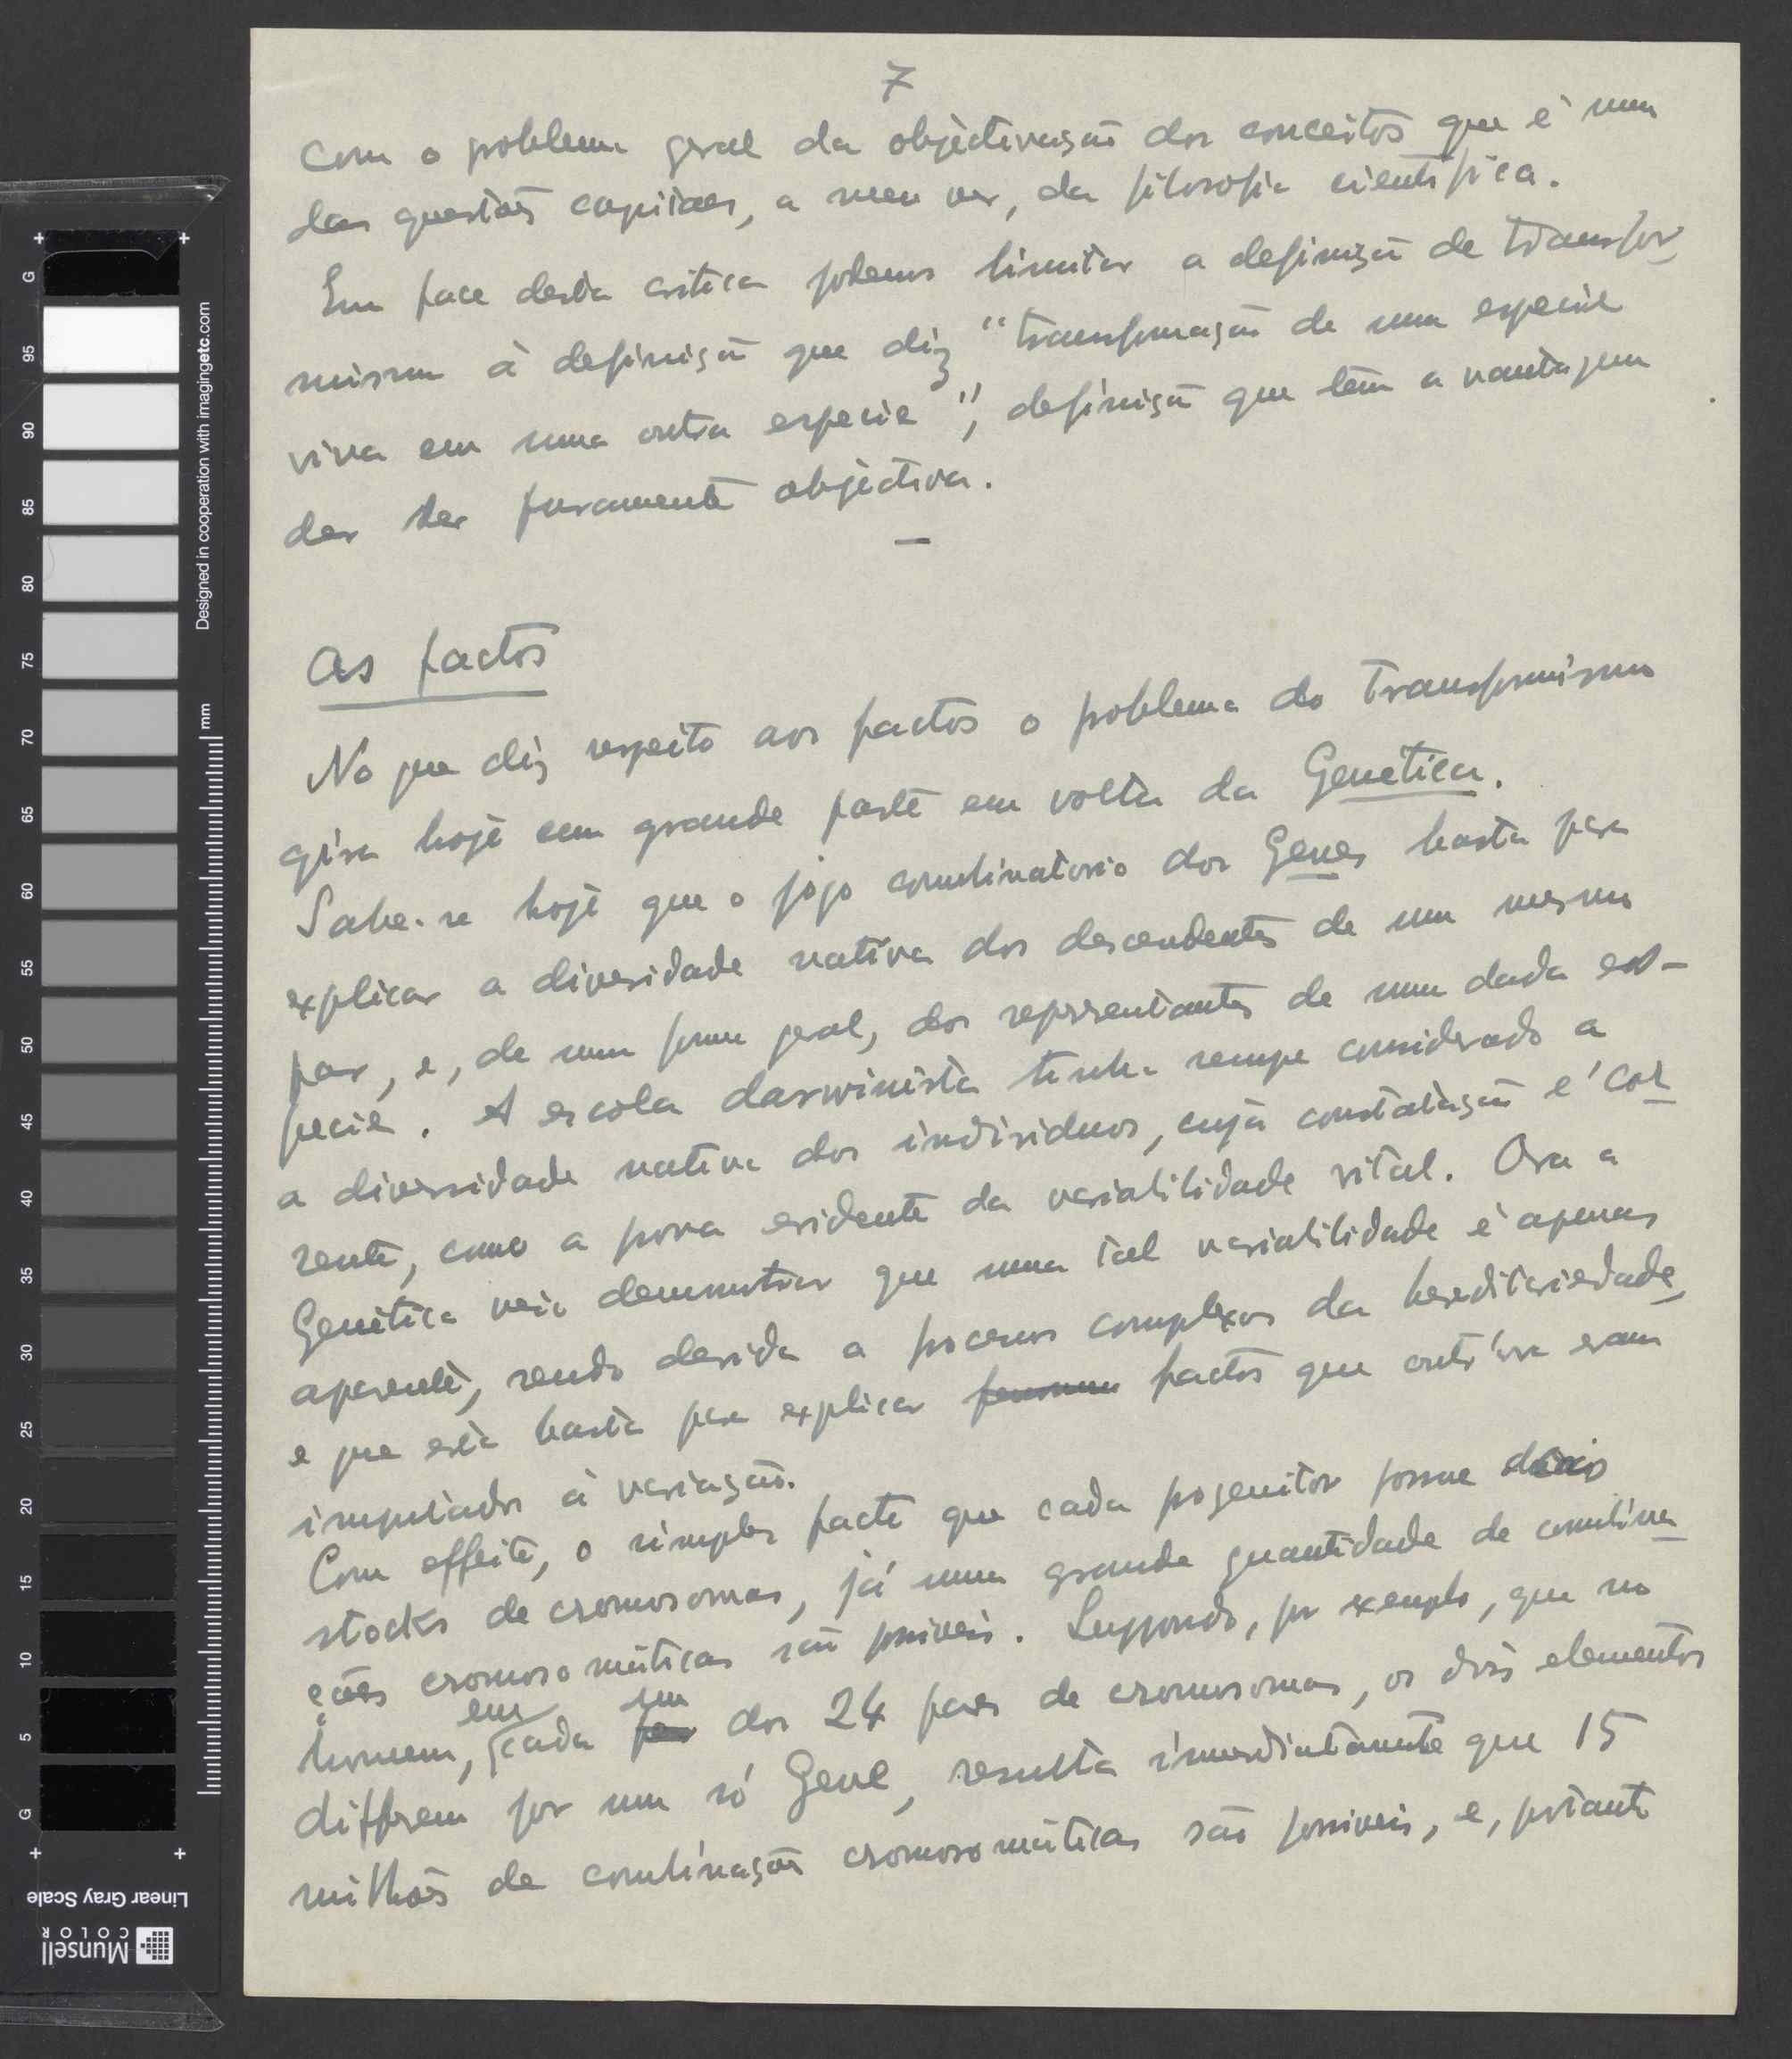 7
com o problema geral da objectivação dos conceitos que é uma
das questões capitaes, a meu ver, da filosofia cientifica.
Em face desta critica podemos limitar a definição de transfor-
mismo à definição que diz "transformação de uma especie
viva em uma outra especie", definição que têm a vantagem
der ser puramente objectiva.
—
Os factos
No que diz respeito aos factos o problema do Transformismo
gira hoje em grande parte em volta da Genetica.
Sabe-se hoje que o jogo combinatorio dos Genes basta para
explicar a diversidade nativa dos descendentes de um mesmo
par, e, de uma forma geral, dos representantes de uma dada es-
pecie. A escola darwinista tinha sempre considerado a
a diversidade nativa dos individuos, cuja constatação é cor-
rente, como a prova evidente da variabilidade vital. Ora a
Genética veio demonstrar que uma tal variabilidade é apenas
aparente, sendo devida a processos complexos da hereditariedade,
e que esta basta para explicar factos que outrora eram
imputados à variação.
Com effeito, o simples facto que cada progenitor possue dois
stocks de cromosomas, já uma grande quantidade de combina-
ções cromosomáticas são possiveis. Suppondo, por exemplo, que no
homem, em cada um dos 24 pares de cromosomas, os dois elementos
differem por um só Gene, resulta imediatamente que 15
milhões de combinações cromosomáticas são possiveis, e, portanto
Designed in cooperation with imagingetc.com
mm
G 95 90 85 80 75 70 65 60 55 50 45 40 35 30 25 20 15 10 5 G
Linear Gray Scale
Munsell
COLOR